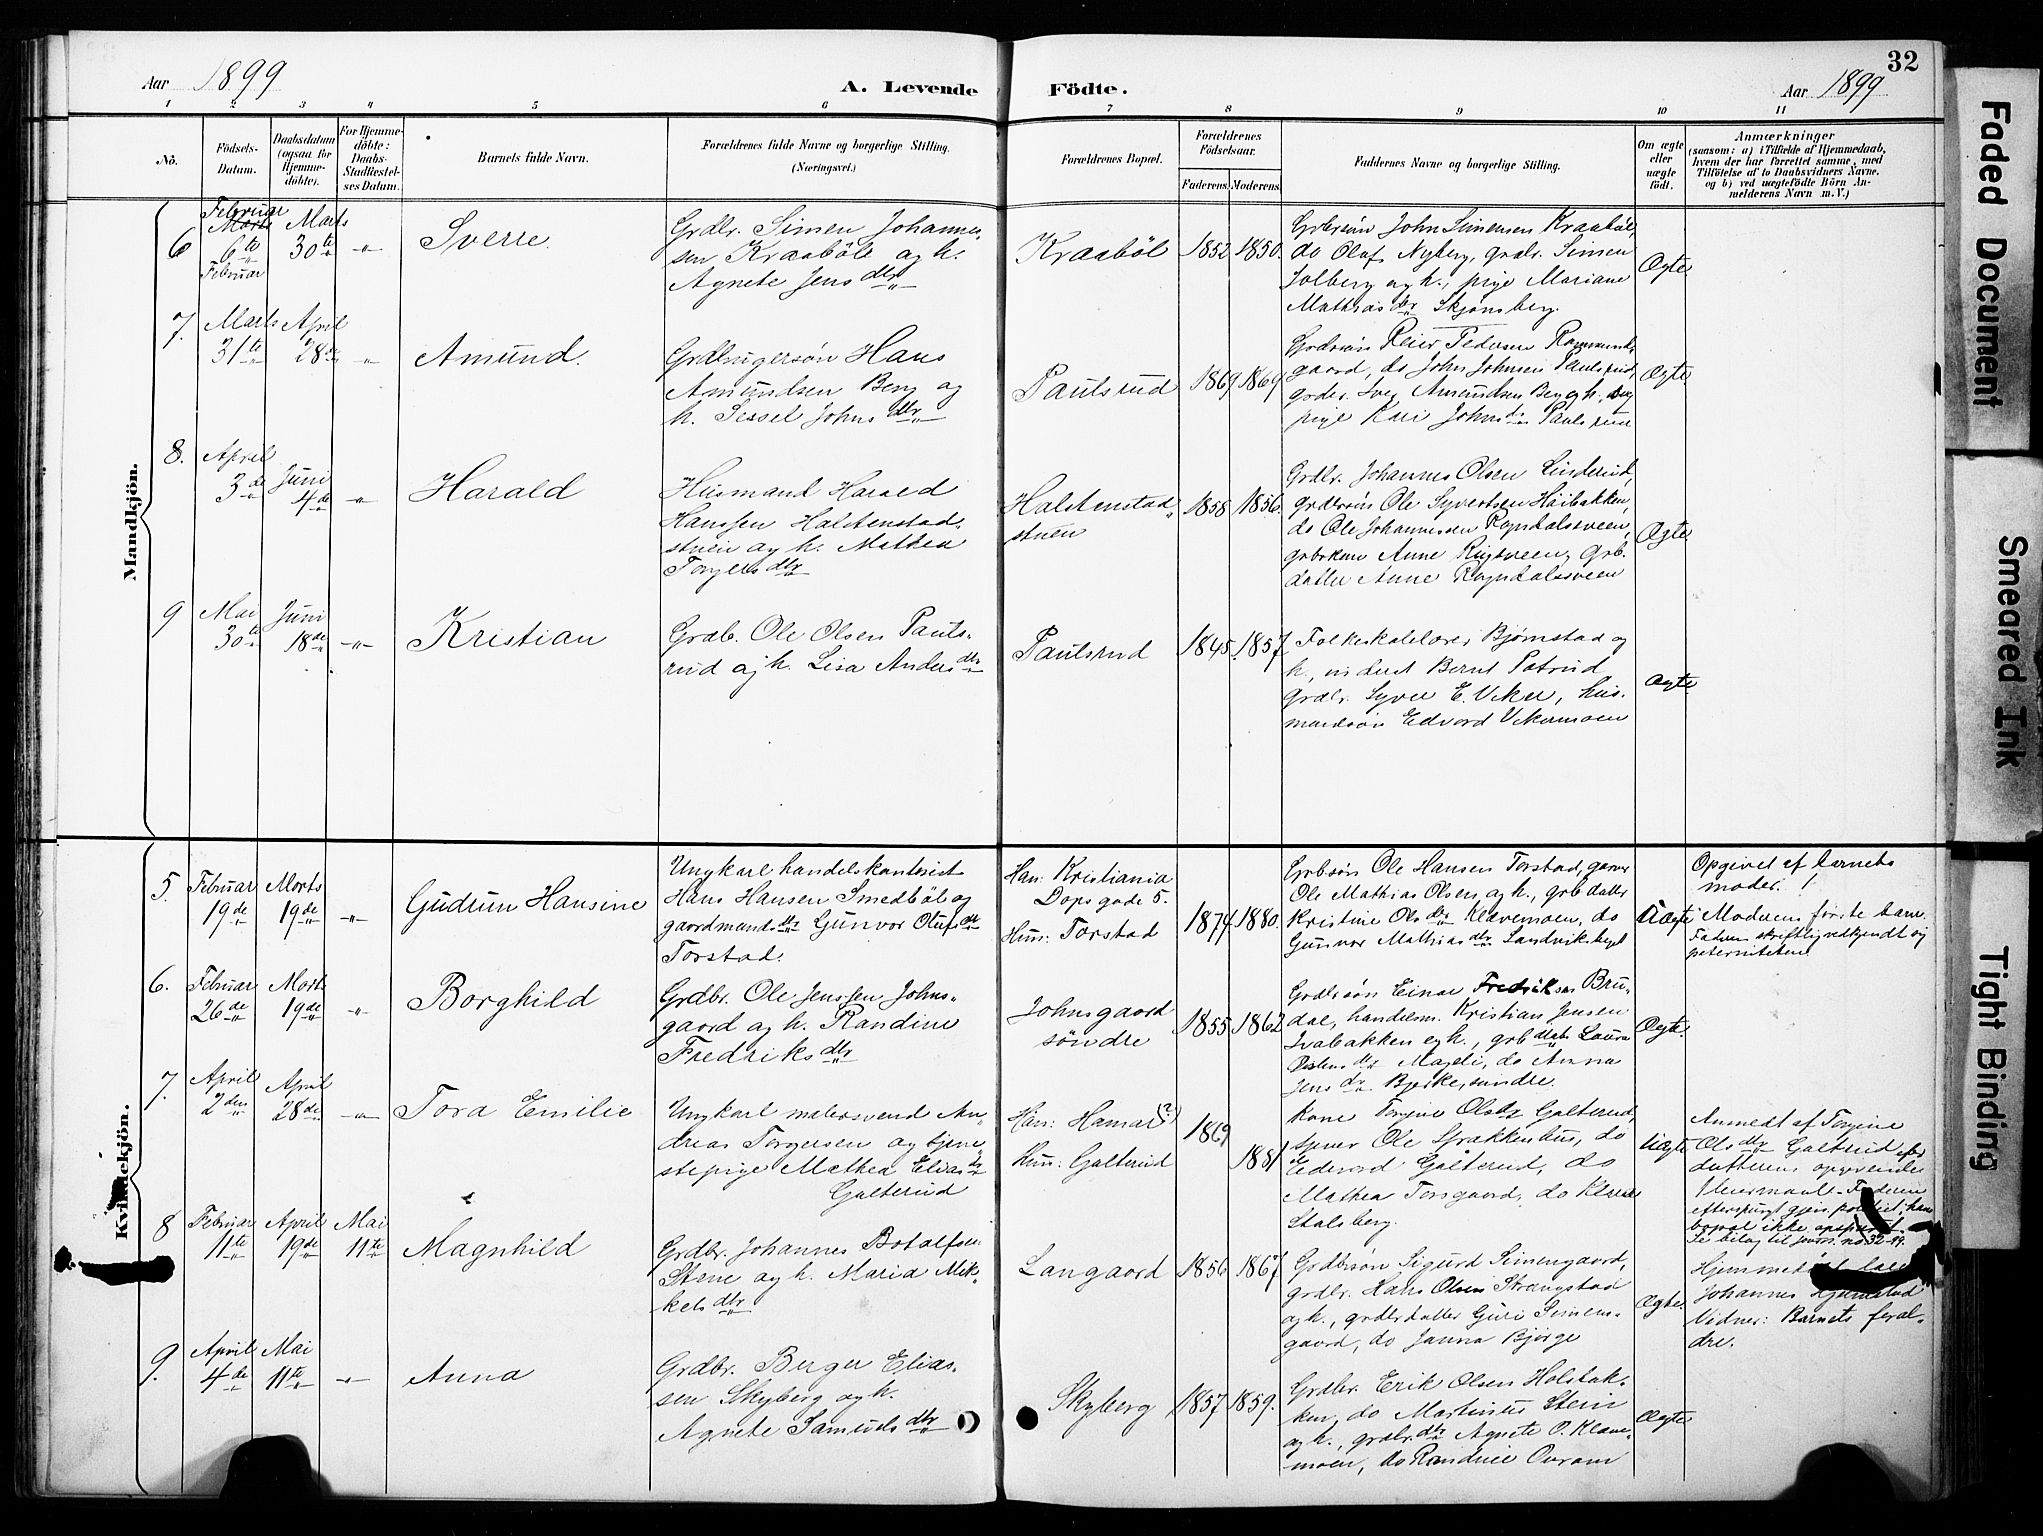 32
Aar 1899
A. Levende Födte.
Aar 1899
1 2 3 4 5 6 7 8 9 10 11
No.
Födsels-
Datum.
Daabsdatum
(ogsaa for
Hjemme-
döbte).
For Hjemme-
döbte:
Daabs-
Stadfæstel-
ses Datum.
Barnets fulde Navn.
Forældrenes fulde Navne og borgerlige Stilling.
(Næringsvei.)
Forældrenes Bopæl.
Forældrenes
Födselsaar.
Faderens. Moderens.
Faddernes Navne og borgerlige Stilling.
Om ægte
eller
uægte
født.
Anmærkninger
(saasom: a) i Tilfælde af Hjemmedaab,
hvem der har forrettet samme, med
Tilföielse af to Daabsvidners Navne,
og b) ved uægtefödte Börn An-
melderens Navn m. V.)
Mandkjön.
6
Februar
Marts
6te
Februar
Marts
30te
"
Sverre
Grdbr. Simen Johannes-
sen Kraaböle og h.
Agnete Jensdtr
Kraaböl
1852 1850.
Grdbrsøn John Simensen Kraaböl,
do Oluf Nyberg, grdbr. Simen
Solberg og h., pige Mariane
Mathiasdtr Skjønsberg.
Ægte
7.
Marts
31te
April
28de
"
Amund.
Grdbrugersøn Hans
Amundsen Berg og
h. Sessel Johnsdtr
Paulsrud
1869 1869
Grdbrsøn Peier Pedersen
gaard, do John Johnsen Paulsrud,
Amundsen Berg og h.
pige Kari Johnsdtr Paulsrud
Ægte
8.
April
3de
Juni
4de
"
Harald
Husmand Harald
Hanssen Halstenstad-
stuen og h. Mathea
Torgersdtr
Halstenstad-
stuen
1858 1856.
Grdbr. Johannes Olsen Linderud,
grdbrsøn Ole Syvertsen Høibakken,
do Ole Johannessen Rogndalssveen,
grbrkone Anne Rugsveen, Grb.
datter Anne Rogndalssveen
Ægte
9
Mai
30te
Juni
18de
"
Kristian
Grdb. Ole Olsen Pauls-
rud og h. Lisa Andersdtr
Paulsrud
1845. 1857.
Folkeskolelærer Bjørnstad og
h., inderst Bernt
Grdbr. Syver E. Veker, hus-
mandsøn Edvard Vekermoen
Ægte
Kvindekjön.
5.
Februar
19de
Marts
19de
"
Gudrun Hansine
Ungkarl handelskontorist
Hans Hansen Smedböl og
gaardmandsdtr Gunvor Olufsdtr
Torstad.
Han: Kristiania
Dopsgade 5.
Hun: Torstad
1874. 1880.
Grbsøn Ole Hansen Torstad, garver
Ole Mathias Olsen og h., grb datter
Kristine Olsdtr Klævemoen, do
Gunvor Mathiasdtr Sandvik
Uægte
Opgivet af barnets
moder.
Moderens første barn.
Faderen skriftlig vedkjendt sig
paterniteten
6.
Februar
26de
Marts
19de
"
Borghild
Grdbr. Ole Jenssen Johns-
gaard og h. Randine
Fredriksdtr
Johnsgaard
søndre
1855 1862
Grdbrsøn Einar Fredriksen Bru-
dal, handelsm. Kristian Jensen
Svabakken og h., grb datter Laura
Mageli, do Anna
Jensdtr Bjerke, søndre.
Ægte.
7.
April
2den
April
28de
"
Tora Emilie
Ungkarl malersvend An-
dreas Torgersen og tjene-
stepige Mathea Eliasdtr
Galterud
Han: Hamar (?)
Hun: Galterud
1869
1881
Kone Torgine Olsdtr Galterud,
Ole Sprakkenhus, do
Edevard Galterud, do
Mathea Torsgaard, do Klara
Stalsberg.
Uægte
Anmeldt af Torgine
Olsdtr Galterud efter
datterens opgivende
Faderen
efterspurgt gjen. politiet, hans
bopæl ikke opspurgt
Se bilag til no. 32-99.
8
Februar
11te
April
19de
Mai
11te
Magnhild
Grdbr. Johannes Botolfsen
Stene og h. Maria Mik-
kelsdtr
Langaard
1856 1867
Grdbrsøn Sigurd Simengaard,
grdbr. Hans Olsen Strangstad
og h., grdbrdatter Guri Simens-
gaard, do Janna Bjørge
Ægte.
Hjemmedøbt
Johannes Hjelmstad
Vidner: Barnets foræl-
dre.
9.
April
4de
Mai
11te
"
Anna
Grdbr. Berger Elias-
sen Skyberg og h.
Agnete Samuelsdtr
Skyberg
1857 1859.
Grdbr. Erik Olsen Holstak-
ken, do Martinus Stein
og h., grdbr.dtr Agnete O. Klæve-
moen, do Randine Ovram
Ægte
Faded Document
Smeared Ink
Tight Binding